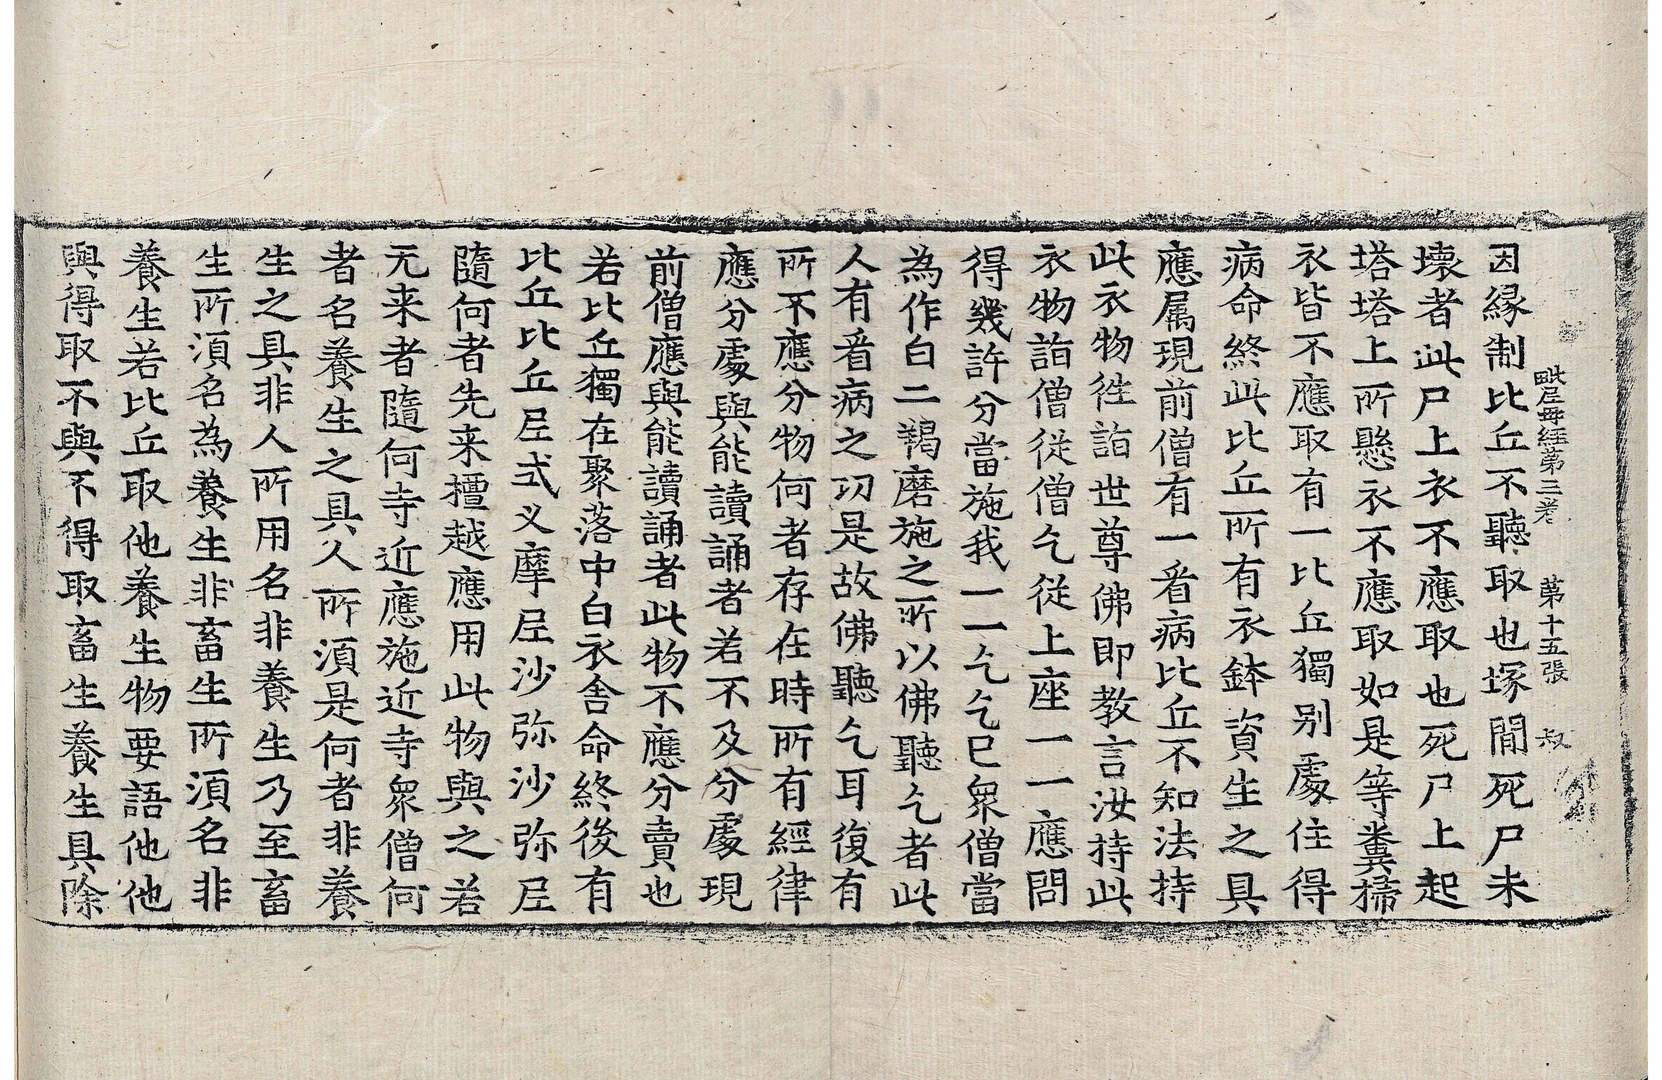 毗尼母經第三卷 第十五張 叔
因緣制比丘不聽取也塚間死尸未
壞者此尸上衣不應取也死尸上起
塔塔上所懸衣不應取如是等糞掃
衣皆不應取有一比丘獨別處住得
病命終此比丘所有衣鉢資生之具
應属現前僧有一看病比丘不知法持
此衣物徃詣世尊佛即教言汝持此
衣物詣僧從僧乞從上座一一應問
得幾許分當施我一一乞乞已衆僧當
為作白二羯磨施之所以佛聽乞者此
人有看病之功是故佛聽乞耳復有
所不應分物何者存在時所有經律
應分處與能讀誦者若不及分處現
前僧應與能讀誦者此物不應分賣也
若比丘獨在聚落中白衣舍命終後有
比丘比丘尼式义摩尼沙弥沙弥尼
隨何者先来擅越應用此物與之若
无来者隨何寺近應施近寺衆僧何
者名養生之具人所湏是何者非養
生之具非人所用名非養生乃至畜
生所湏名為養生非畜生所湏名非
養生若比丘取他養生物要語他他
與得取不與不得取畜生養生具除